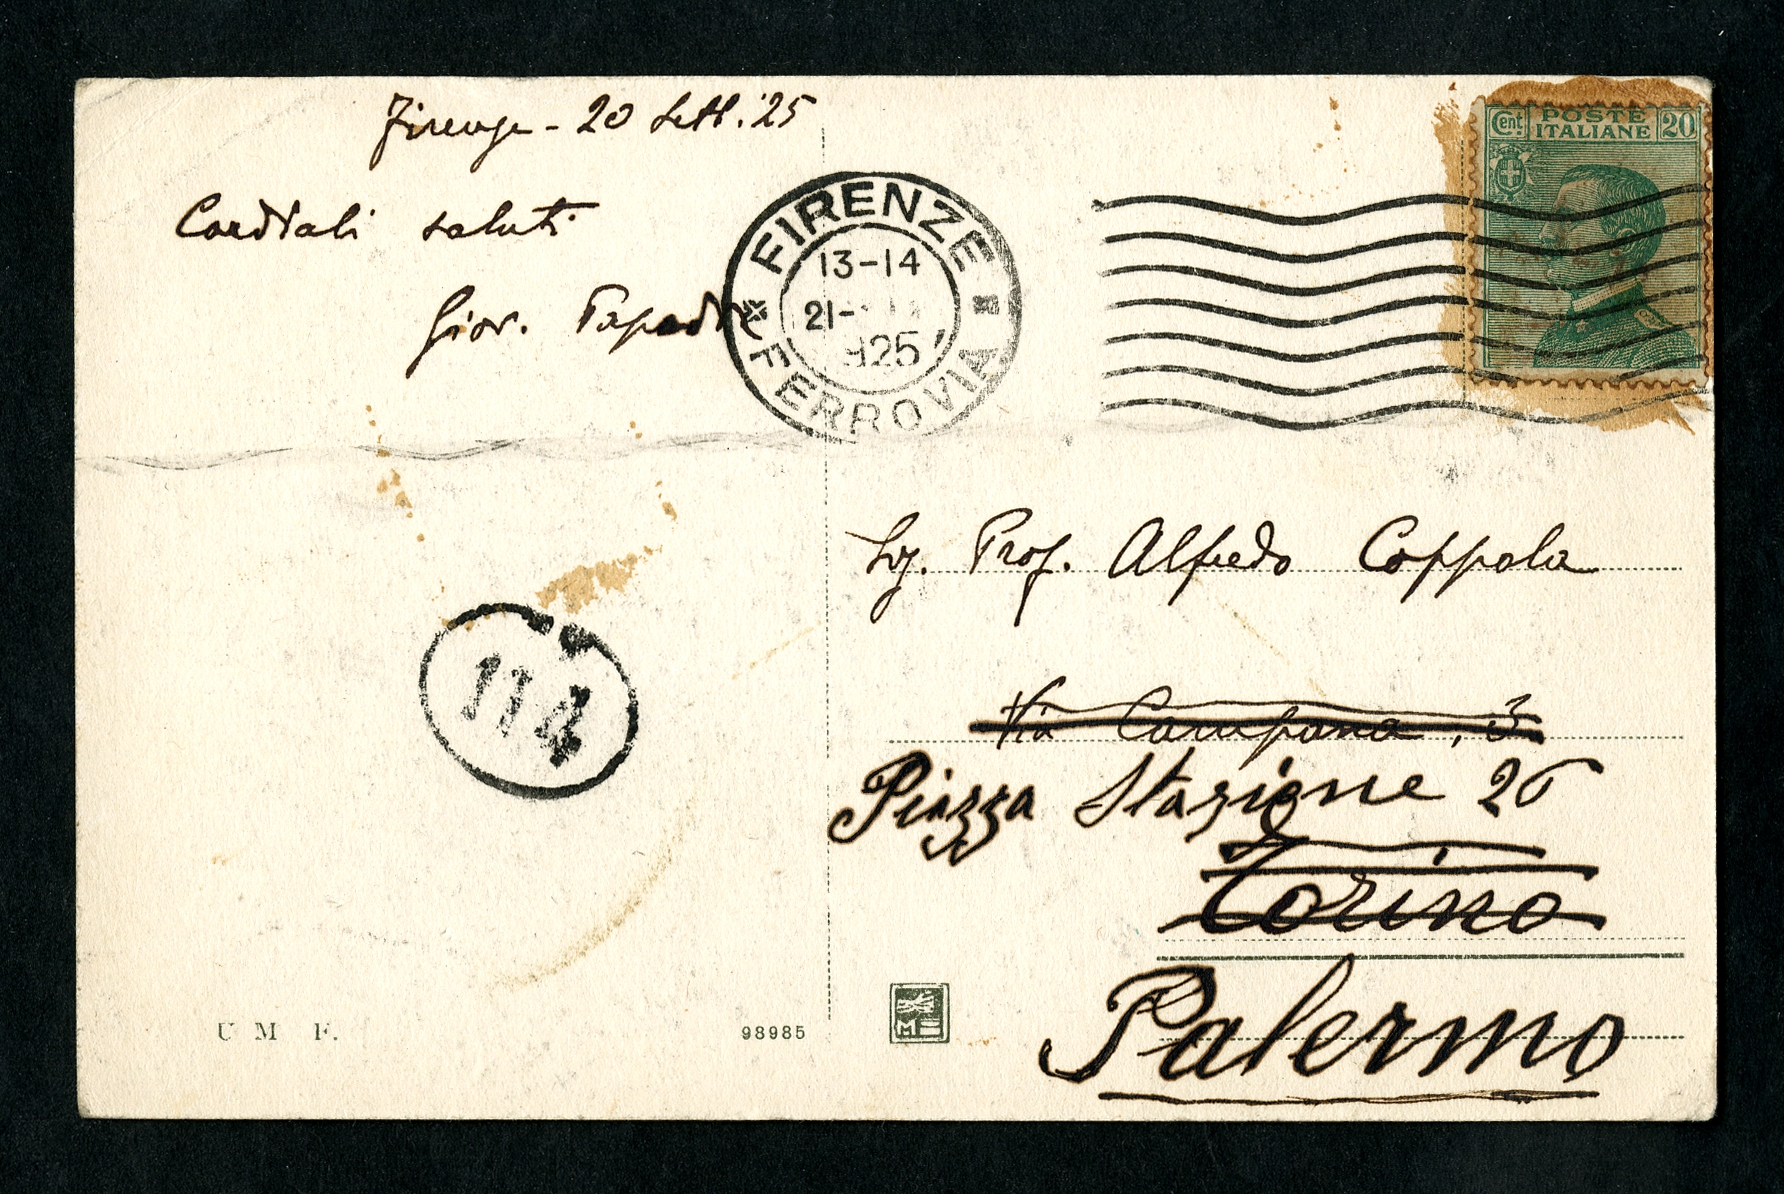 Firenze - 20 Sett. '25
Cordiali saluti
Giov.
FIRENZE
13-14
21-
925
FERROVIA
Cent POSTE ITALIANE 20
114
Sig. Prof. Alfredo Coppola
Via Campana, 3
Piazza Stazione 26
Torino
Palermo
U M F.
98985